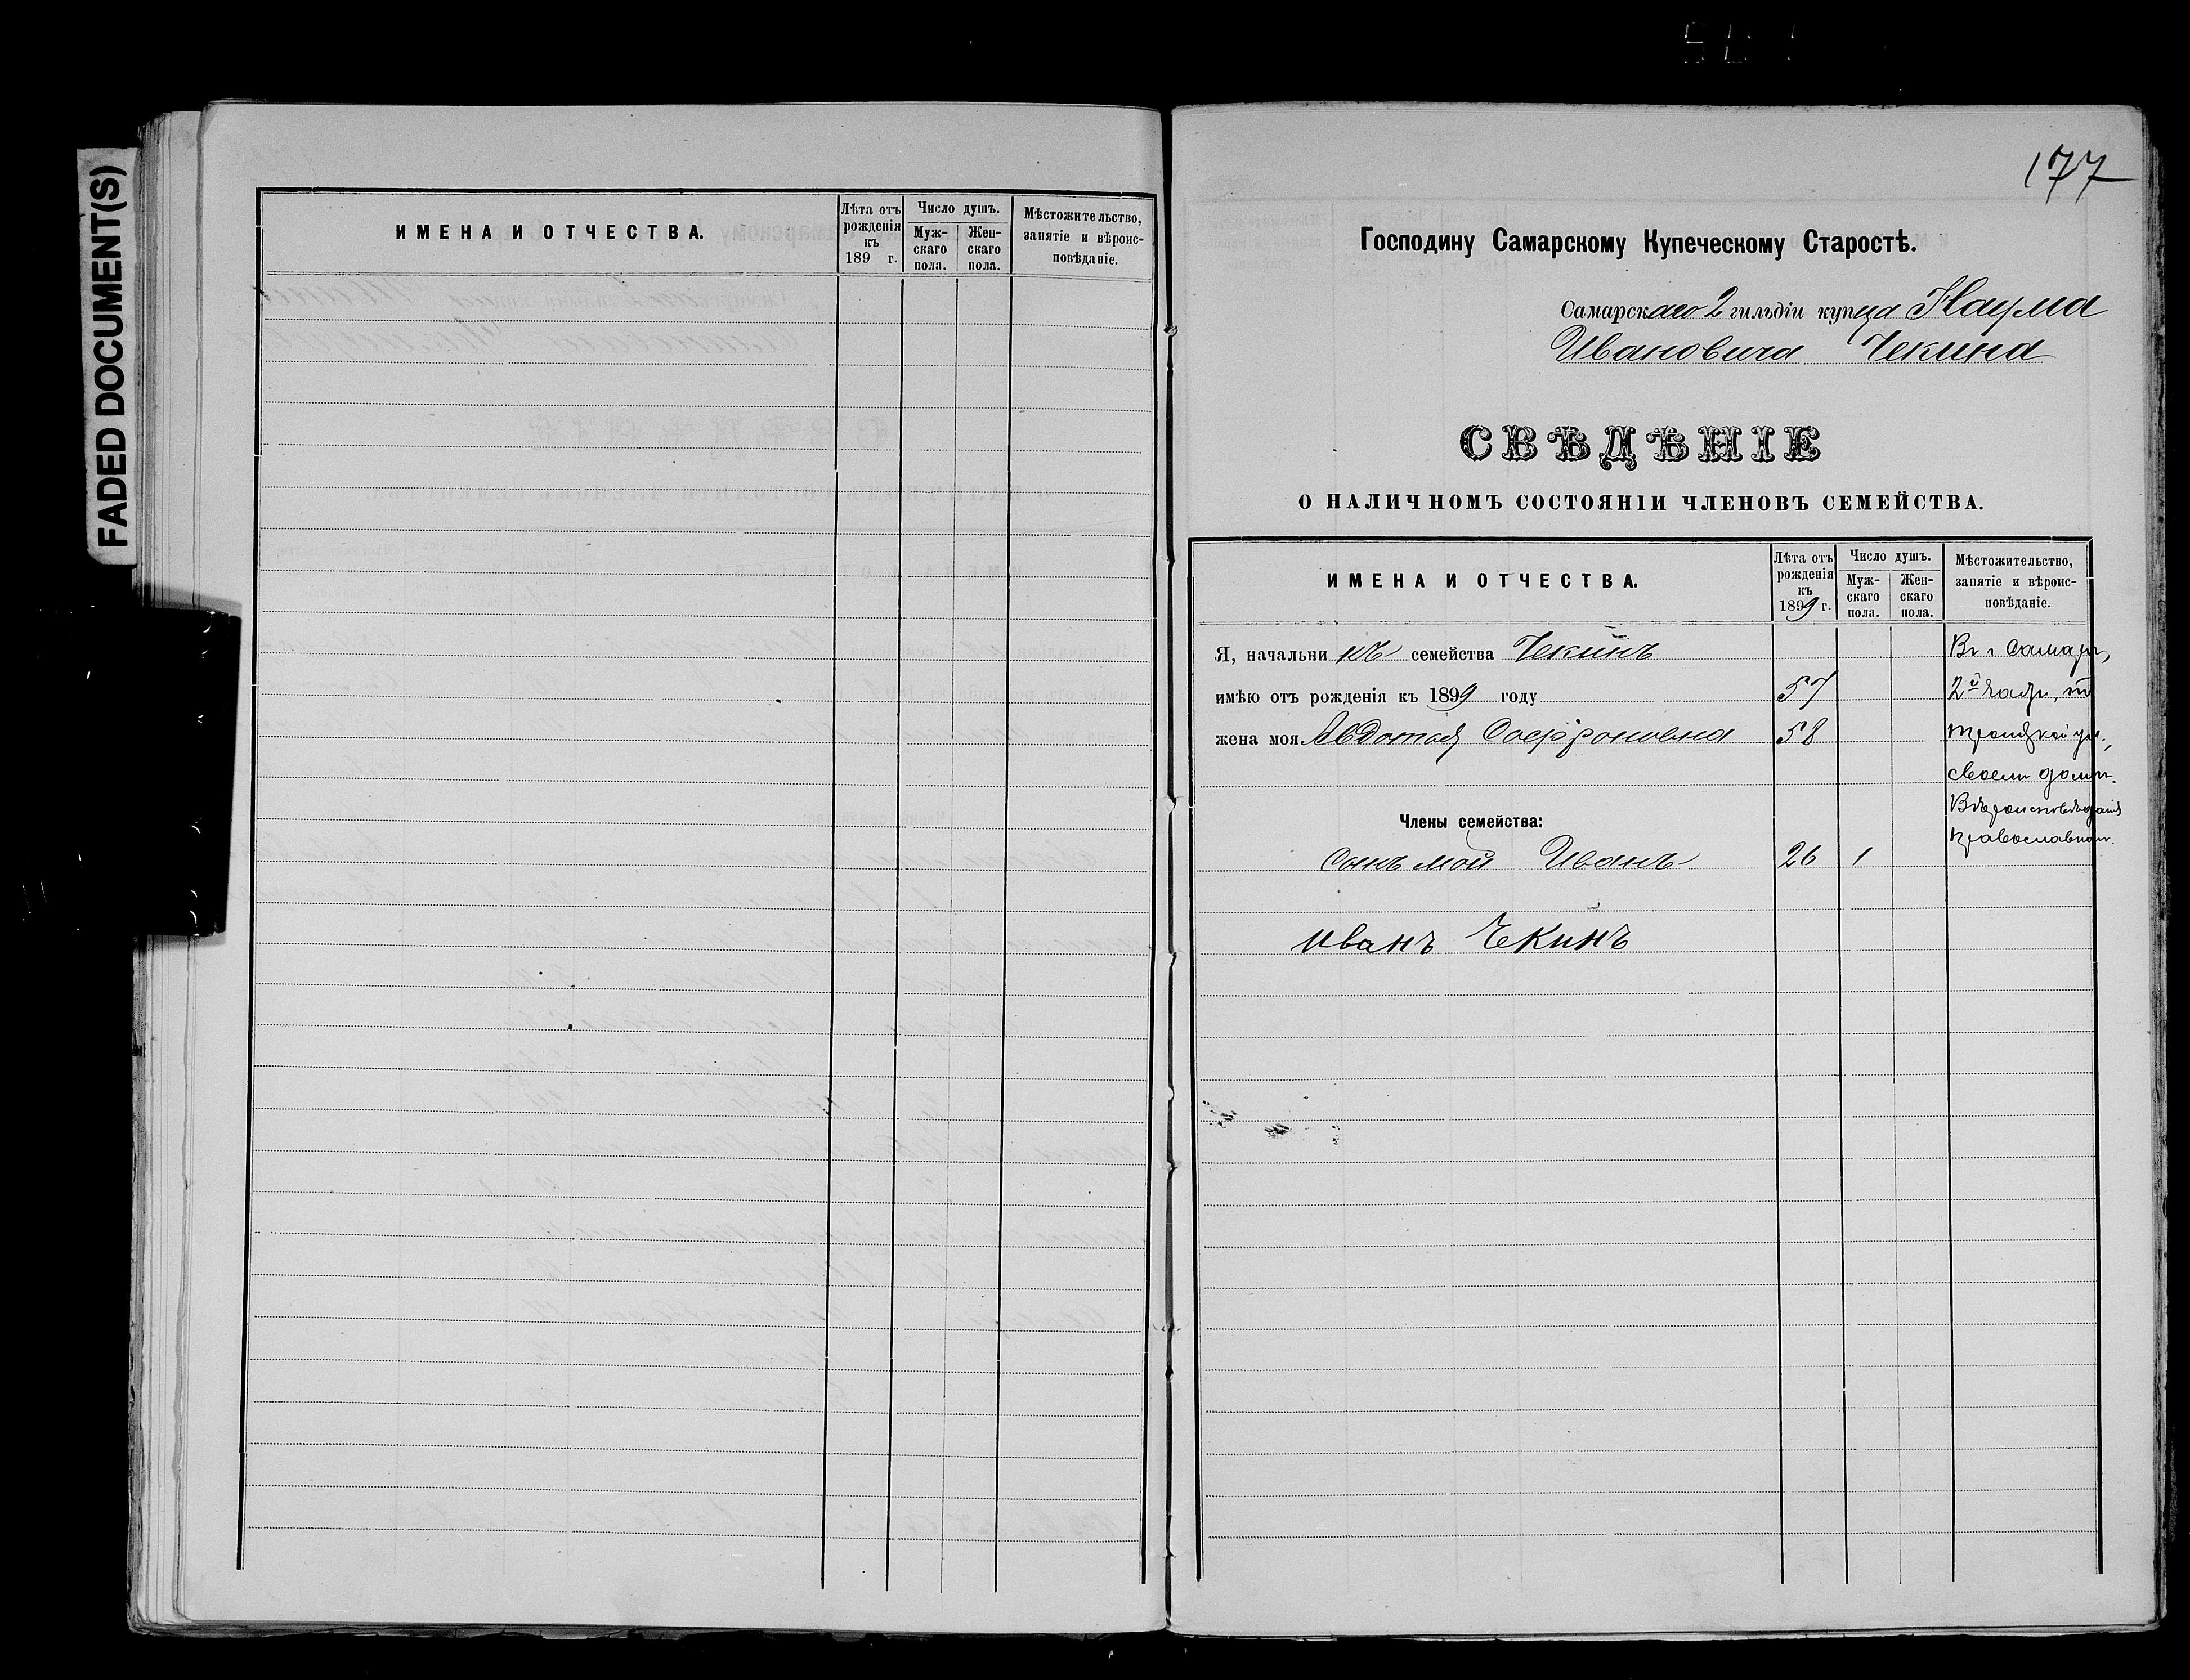 FADED DOCUMENT(S)
ИМЕНА И ОТЧЕСТВА.
Лѣта отъ
рожденія
къ
189 г.
Число душъ.
Муж-
скаго
пола.
Жен-
скаго
пола.
Мѣстожительство,
занятіе и вѣроис-
повѣданіе.
177
Господину Самарскому Купеческому Старостѣ.
Самарскаго 2 гильдіи купца Наума
Ивановича Чекина
СВѢДѢНІЕ
О НАЛИЧНОМЪ СОСТОЯНІИ ЧЛЕНОВЪ СЕМЕЙСТВА.
ИМЕНА И ОТЧЕСТВА.
Лѣта отъ
рожденія
къ
1899 г.
Число душъ.
Муж-
скаго
пола.
Жен-
скаго
пола.
Мѣстожительство,
занятіе и вѣроис-
повѣданіе.
Я, начальникъ семейства Чекинъ
имѣю отъ рожденія къ 1899 году 57
жена моя Авдотья Софроновна 58
Члены семейства:
Сынъ мой Иванъ 26 1
Иванъ Чекинъ
Въ г Самарѣ,
2й части,
Троицкой ул.,
своемъ домѣ.
Вѣроисповѣданія
православнаго.